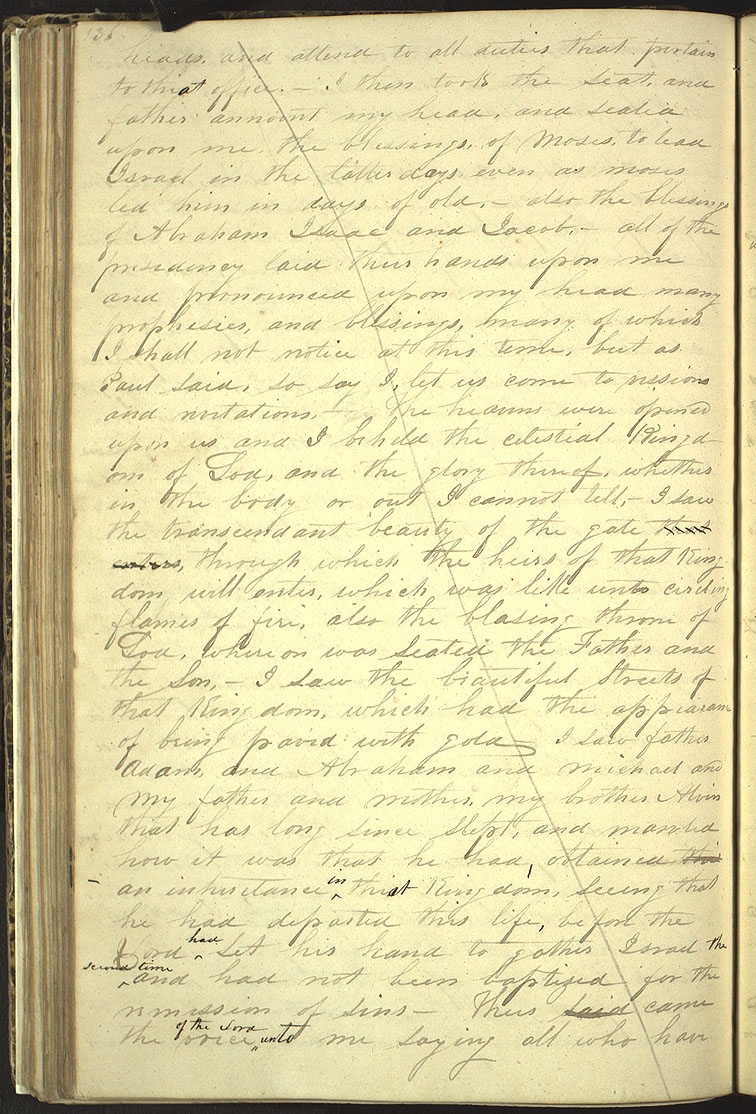 136
heads. and attend to all duties that pertain
to that office. — I then took the seat, and
father annoint my head, and sealed
upon me, the blessings, of Moses, to lead
Israel in the latter days, even as moses
led him in days of old, — also the blessings
of Abraham Isaac and Jacob, — all of the
presidency laid their hands upon me
and pronounced upon my head many
prophesies, and blessings, many of which
I shall not notice at this time, but as
Paul said, so say I, let us come to vissions
and revelations, — The heavens were opened
upon us and I beheld the celestial Kingd-
om of God, and the glory thereof, whether
in the body or out I cannot tell, — I saw
the transcendant beauty of the gate that
enters, through which the heirs of that King
dom will enter, which was like unto circling
flames of fire, also the blasing throne of
God, whereon was seated the Father and
the Son, — I saw the beautiful streets of
that Kingdom, which had the appearance
of being paved with gold — I saw father
Adam, and Abraham and Michael and
my father and mother, my brother Alvin
that has long since slept, and marvled
how it was that he had obtained this
an inheritance in that Kingdom, seeing that
he had departed this life, before the
Lord had Set his hand to gather Israel the
second time and had not been baptized for the
remission of sins — Thus said came
the voice of the Lord unto me saying all who have